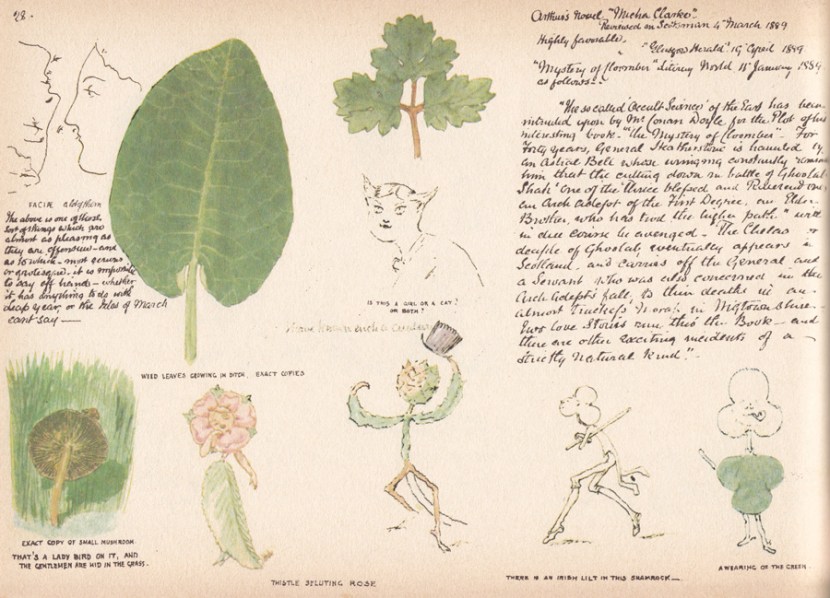 28.
Arthur's Novel "Micha Clarke".
Reviewed in Scotsman 4 March 1889
Highly favorable.
" "Glasgow Herald" 19 April 1889.
"Mystery of Cloomber" Literary World 11 January 1889
as follows:-
"The so called 'Occult Science' of the East has been
intruded upon by Mr Conan Doyle for the Plot of his
interesting book "The Mystery of Cloomber" - For
Forty years, General Heatherstone is haunted by
an Astral Bell whose ringing constantly reminds
him that the cutting down in battle of Ghoolab
Shah 'one of the thrice blessed and Reverend one,
an Arch adept of the First Degree, an Elder
Brother, who has trod the higher path" must
in due course be avenged - The Chelas or
disciple of Ghoolab, eventually appears in
Scotland, and carries off the General and
a Servant who was also concerned in the
Arch adept's fall, to their deaths in an
almost trackless Morass in Wigtownshire.
Two Love Stories run thro' the Book - and
there are other exciting incidents of a
strictly natural kind".
FACIAL
The above is one of those
sort of things which are
almost as pleasing as
they are offensive - and
as to which - most serious
or grotesque, it is impossible
to say off hand - whether
it has anything to do with
Leap year, or the Ides of March
cant say
IS THIS A GIRL OR A CAT?
OR BOTH?
I have known such a
WEED LEAVES GROWING IN DITCH. EXACT COPIES
EXACT COPY OF SMALL MUSHROOM.
THAT'S A LADY BIRD ON IT, AND
THE GENTLEMEN ARE HID IN THE GRASS.
THISTLE SALUTING ROSE
THERE IS AN IRISH LILT IN THIS SHAMROCK
A WEARING OF THE GREEN.